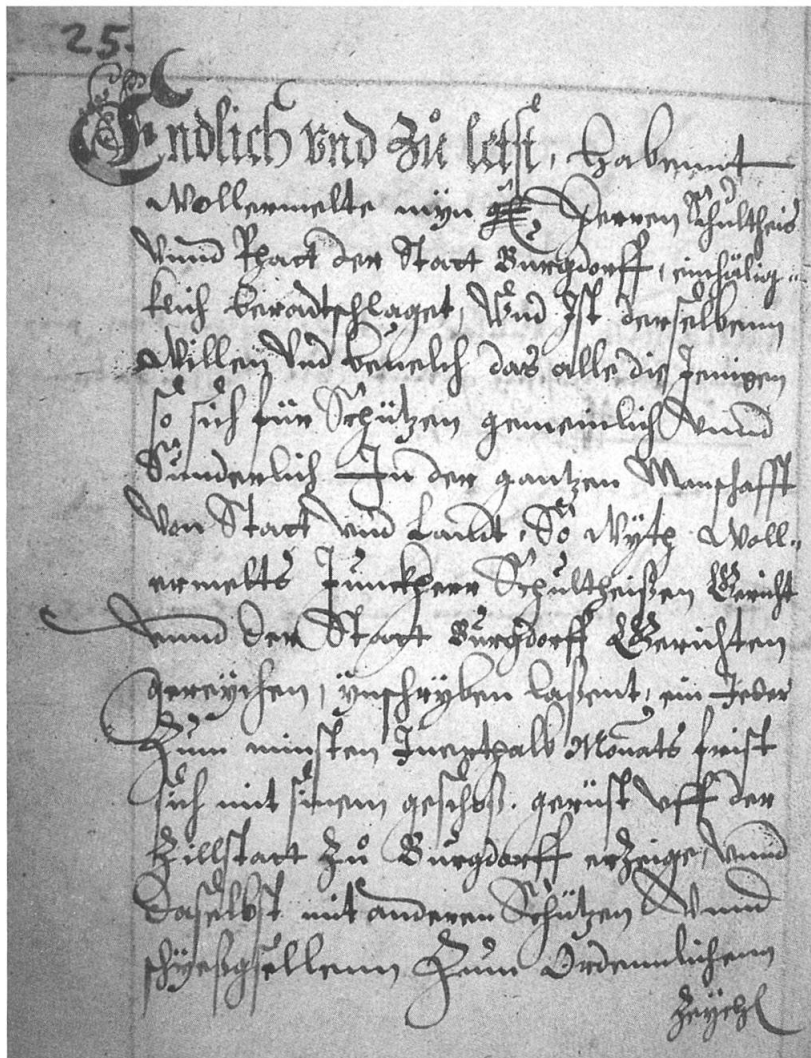 25.
Endlich vnd zů letst, habennt
Wollermelte mÿn Herren Schultheis
Vnnd Rhatt der Statt Burgdorff, einhälig-
klich beradtschlaget, Vnd Ist derselbenn
Willen Vnd beuelch das alle die Jenigen
so sich für Schützen gemeinlich Vnnd
Sunderlich In der gantzen Manschafft
Von Statt vnd Landt, So Wÿth Woll-
ermelts Junckherr Schultheißen Gericht
Vnnd der Statt Burgdorff Gerichten
gereÿchen, ÿnschrÿben laßent, ein Jeder
Zum minsten Innerthalb Monats frist
sich mit sinem geschoß gerüst vff der
Zillstatt Zů Burgdorff erzeige, Vnnd
daselbst mit anderen Schützen Vnnd
schÿeßgsellenn Zum Ordennlichenn